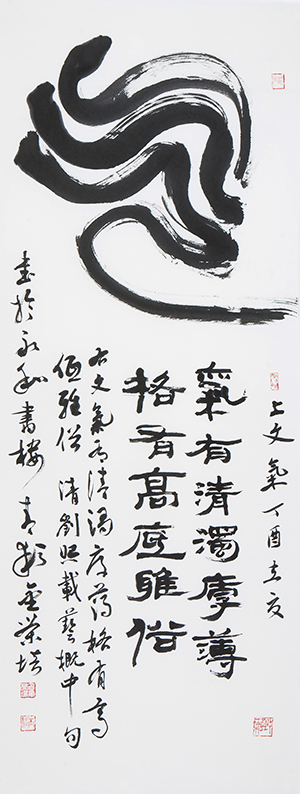 气
上文氣丁酉立夏
氣有清濁厚薄
格有高低雅俗
右文氣有清濁厚薄格有高
低雅俗 清劉熙載藝概中句
書於永和書樓